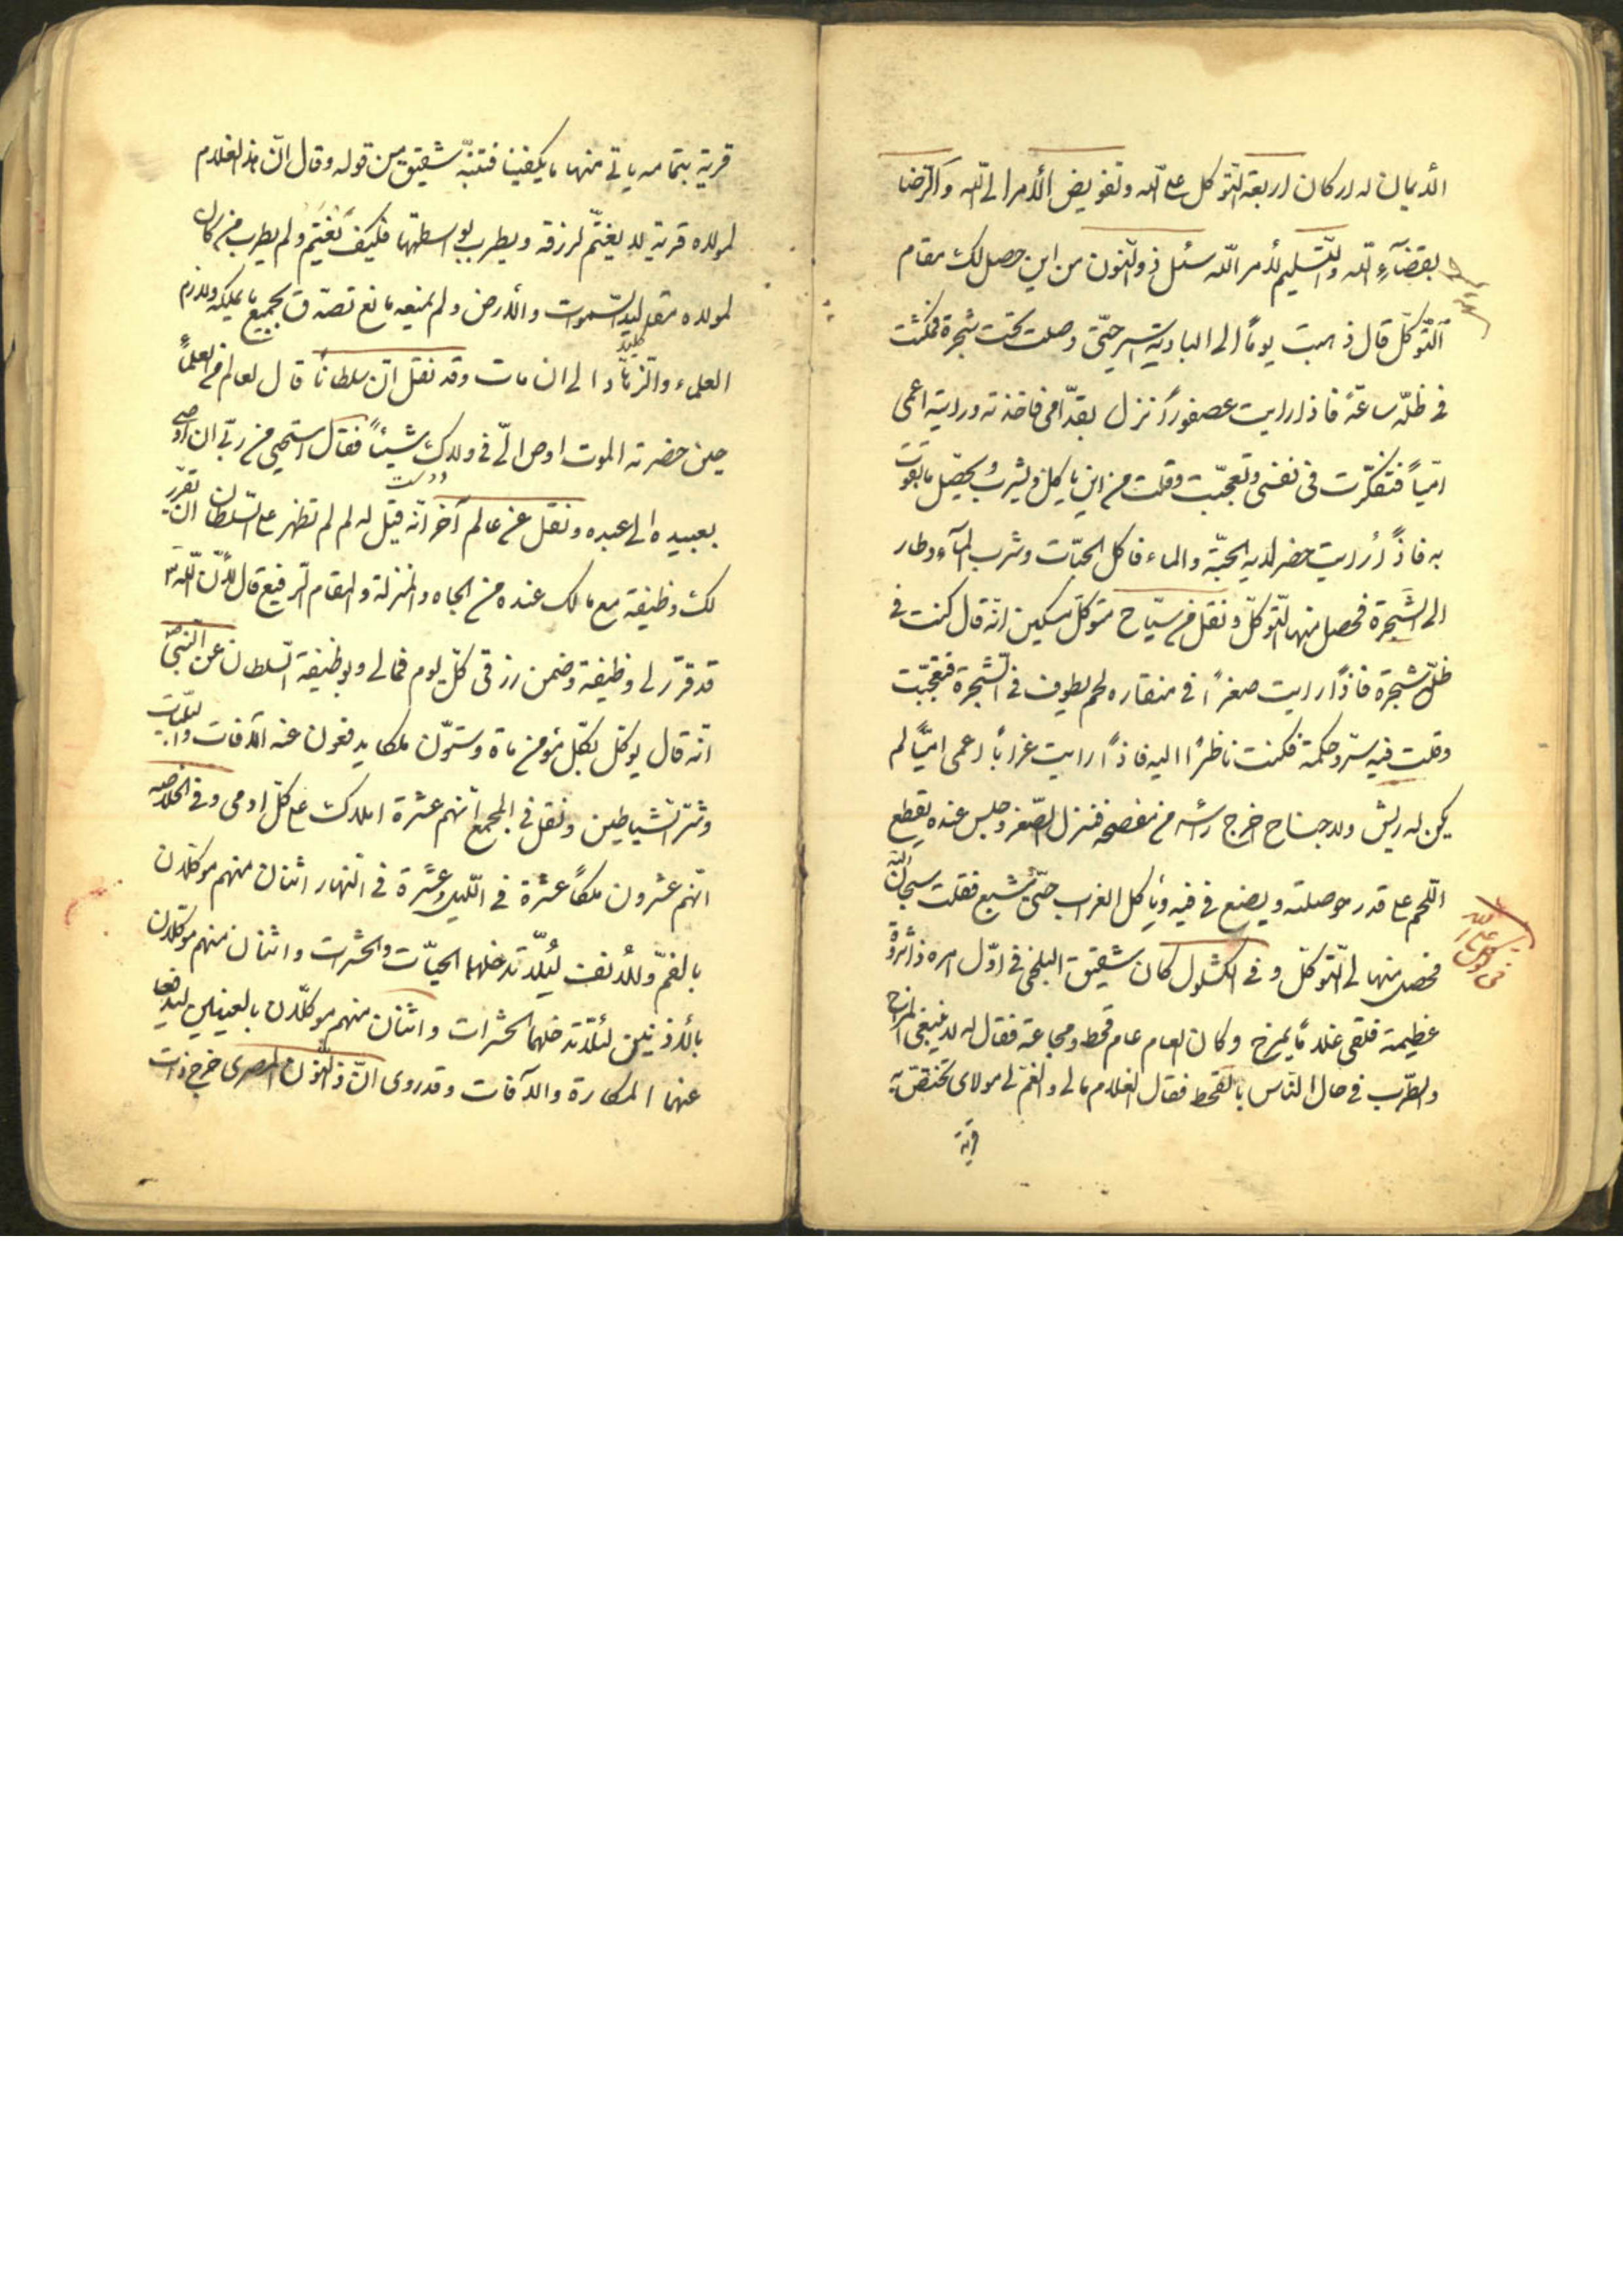 الأيمان له اركان اربعة التوكل على الله وتفويض الأمر الى الله والرّضا
بقضآءِ الله والتّسليم لأمر الله سئل ذو النّون من اين حصل لك مقام
التّوكّل قال ذهبت يوماً الى البادية اسير حتّى وصلت تحت شجرة فمكثت
فى ظلّه ساعة فاذا رايت عصفوراً نزل بقدّامى فاخذته ورايته اعمى
امّياً فتفكّرت فى نفسى وتعجّبت وقلت من اين يأكل ويشرب ويحصّل ما يقوت
به فاذاً رايت حضر لديه الحبّة والماء فاكل الحبّات وشرب المآء وطار
الى الشّجرة فحصل منها التّوكّل ونقل من سيّاح متوكّل مسكين انّه قال كنت فى
ظلّ شجرة فاذاً رايت صغراً فى منقاره لحم يطوف فى الشّجرة فتعجّبت
وقلت فيه سرّ وحكمة فكمنت ناظراً اليه فاذاً رايت غراباً اعمى امّيّاً لم
يكن له ريش ولا جناح خرج رأسه من فنزل الصّغر وجلس عنده يقطع
اللّحم على قدر حوصلته ويضع فى فيه ويأكل الغراب حتّى شبع فقلت سبحان الله
فحصل منها لى التّوكّل وفى الكشكول كان شقيق البلخى فى اوّل امره ذا ثروة
عظيمة فلقى غلاماً يمزح وكان العام عام قحط ومجاعة فقال له لا ينبغى المزاح
والطّرب فى حال النّاس بالقحط فقال الغلام مالى والغمّ لى مولاى تختصّ به
قرية
فى التوكل على الله
قرية بتمامه ياتى منها ما يكفينا فتنبّه شقيق من قوله وقال انّ هذا الغلام
لمولاه قرية لا يغتمّ لرزقه ويطرب بواسطتها فكيف تغتمّ ولم يطرب من كان
لمولاه مقاليد السّموات والأرض ولم يمنعه مانع تصدّق بجميع ما يملكه ولازم
كليد
العلماء والزّهّاد الى ان مات وقد نقل انّ سلطاناً قال لعالم من العلماً
حين حضرته الموت اوص الىّ فى ولدك شيئاً فقال استحيى من ربّى ان اوصى
بعبيده الى عبده ونقل عن عالم آخر انّه قيل له لم لم تظهر على السّلطان ان يقرّر
لك وظيفة مع مالك عنده من الجاه والمنزلة والمقام الرّفيع قال لأنّ الله
قد قرّر لى وظيفة وضمن رزقى كلّ يوم فمالى وبوظيفة السّلطان عن النّبىّ ص
انّه قال يوكّل بكلّ مؤمن مأة وستّون ملكا يدفعون عنه الآفات والبليّات
وشرّ الشّياطين ونقل فى المجمع انّهم عشرة املاك على كلّ ادمى وفى الخلاصه
انّهم عشرون ملكاً عشرة فى اللّيل وعشرة فى النّهار اثنان منهم موكّلان
بالفمّ والأنف ليلّا تدخلهما الحيّات والحشرات واثنان منهم موكّلان
بالأذنين لئلّا تدخلهما الحشرات واثنان منهم موكّلان بالعينين ليدفعا
عنهما المكارة والآفات وقد روى انّ ذا النّون المصرى خرج ذات